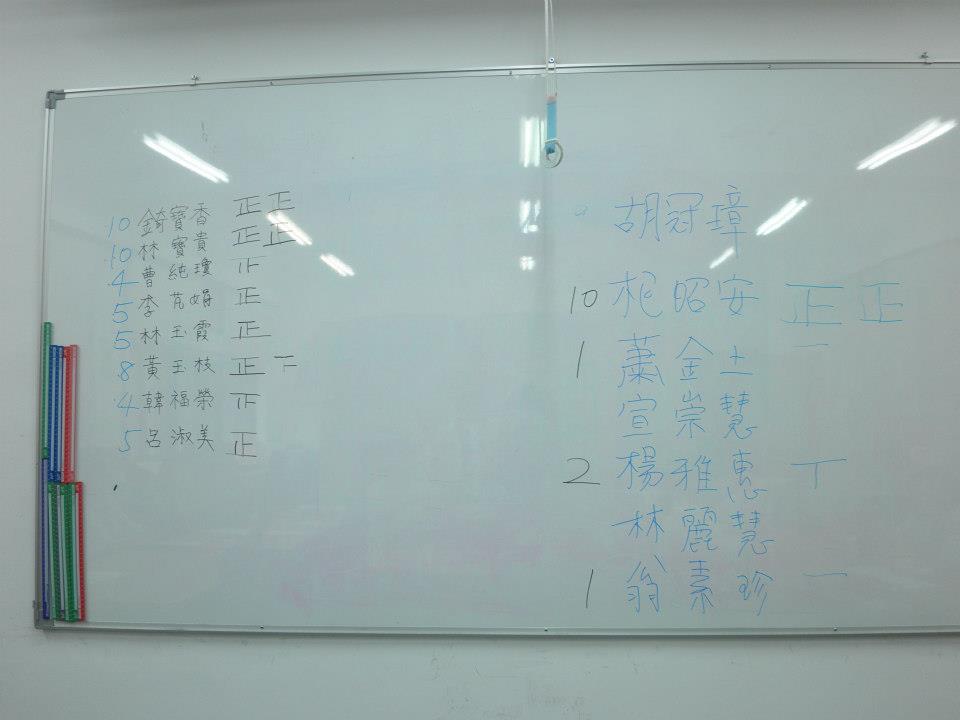 10 錡寶香 正正
10 林寶貴 正正
4 曹純瓊
5 李芃娟 正
5 林玉霞 正
8 黃玉枝 正
4 韓福榮
5 呂淑美 正
胡冠璋
10 杞昭安 正正
1 蕭金土 一
宣崇慧
2 楊雅惠 丅
林麗慧
1 翁素珍 一